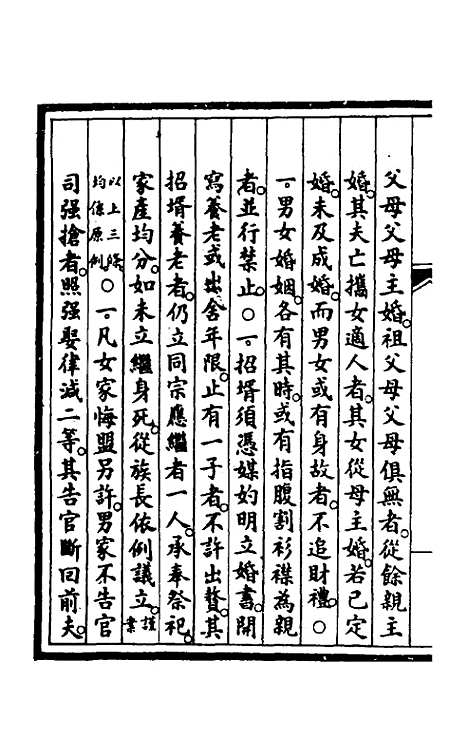 父母父母主婚祖父母父母俱無者從餘親主
婚其夫亡攜女適人者其女從母主婚若已定
婚未及成婚而男女或有身故者不追財禮○
一男女婚姻各有其時或有指腹割衫襟為親
者並行禁止○一招壻須憑媒妁明立婚書開
寫養老或出舍年限止有一子者不許出贅其
招壻養老者仍立同宗應繼者一人承奉祭祀
家產均分如未立繼身死從族長依例議立謹案
以上三條均係原例○一凡女家悔盟另許男家不告官
司强搶者照强娶律減二等其告官斷囘前夫